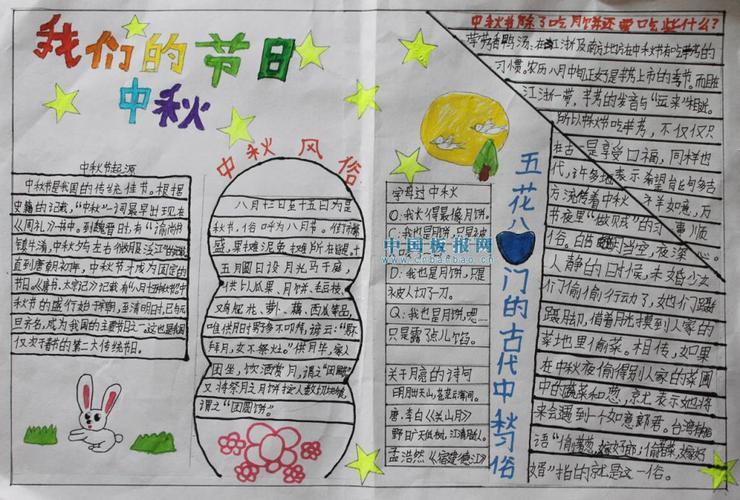 我们的节日
中秋
中秋节起源
中秋节是我国的传统佳节。根据
史籍的记载，“中秋”一词最早出现在
《周礼》一书中。到魏晋时，有“谕尚书
镇牛渚，中秋夕与左右微服泛江”的记载。
直到唐朝初年，中秋节才成为固定的
节日。《唐书·太宗记》记载有“八月十五中秋节”。中
秋节的盛行始于宋朝，至清明时，已与元
旦齐名，成为我国的主要节日之一。这也是我国
仅次于春节的第二大传统节日。
中秋风俗
八月十三日至十五日为是
秋节，俗
十
五月圆日设月光马于庭，
供上瓜果、月饼、毛豆枝、
鸡冠花、萝卜、藕、西瓜等品，
唯供月时男多不叩拜，谚云：“男不
拜月，女不祭灶。”供月毕，家人
团坐，饮酒赏月，谓之“团圆
又将祭月之月饼按人数切块，
谓之“团圆饼”。
字母过中秋
O：我长得最像月饼。
C：我也是月饼，只是被
中国板报网
www.cnbanbao.cn
D：我也是月饼，只是
被人切了一刀。
Q：我也是月饼吧……
只是露了点儿馅。
关于月亮的诗句
明月出天山，苍茫云海间。
唐·李白《关山月》
野旷天低树，江清月近人。
孟浩然《宿建德江》
五花八门的古代中秋习俗
中秋节除了吃月饼还要吃些什么？
芋艿香鸭汤、在江浙及南方地方在中秋节有吃芋艿的
习惯。农历八月中旬正好是芋艿上市的季节。而且
江浙一带，芋艿的发音与“运来”相近。
所以中秋节吃芋艿，不仅仅只
是享受口福，同样也
表示希望
在古代，许多地方流传着中秋
节夜里“做贼”的习
人静的时候，未婚少女
们偷偷行动了，她们蹑
蹑脚，借着月光摸到人家的
菜地里偷菜。相传，如果
在中秋夜偷得别人家的菜圃
中的蔬菜和葱，就表示她将
来会遇到一个如意郎君。台湾
语“偷葱，嫁好郎；偷菜，嫁好
婿”指的就是这一俗。